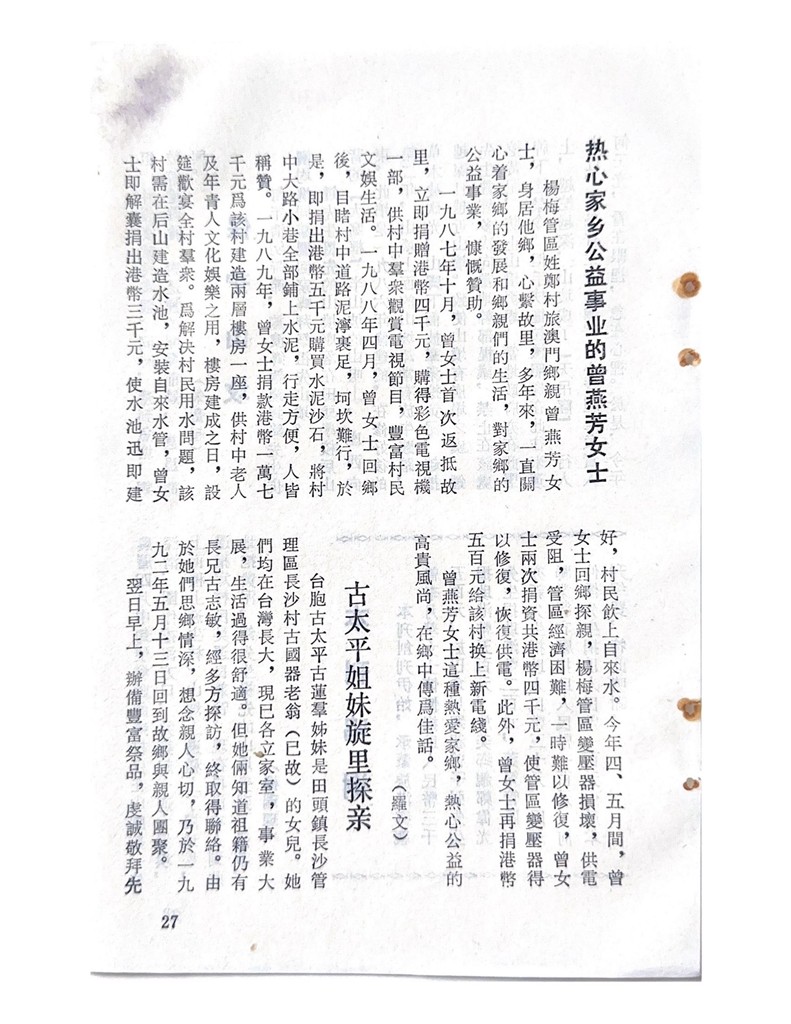 热心家乡公益事业的曾燕芳女士
楊梅管區姓鄭村旅澳門鄉親曾燕芳女
士，身居他鄉，心繫故里，多年來，一直關
心着家鄉的發展和鄉親們的生活，對家鄉的
公益事業，慷慨贊助。
一九八七年十月，曾女士首次返抵故
里，立即捐贈港幣四千元，購得彩色電視機
一部，供村中羣衆觀賞電視節目，豐富村民
文娛生活。一九八八年四月，曾女士回鄉
後，目睹村中道路泥濘裹足，坷坎難行，於
是，即捐出港幣五千元購買水泥沙石，將村
中大路小巷全部鋪上水泥，行走方便，人皆
稱贊。一九八九年，曾女士捐款港幣一萬七
千元爲該村建造兩層樓房一座，供村中老人
及年青人文化娛樂之用，樓房建成之日，設
筵歡宴全村羣衆。爲解決村民用水問題，該
村需在后山建造水池，安裝自來水管，曾女
士即解囊捐出港幣三千元，使水池迅即建
好，村民飲上自來水。今年四、五月間，曾
女士回鄉探親，楊梅管區變壓器損壞，供電
受阻，管區經濟困難，一時難以修復，曾女
士兩次捐資共港幣四千元，使管區變壓器得
以修復，恢復供電。此外，曾女士再捐港幣
五百元給該村换上新電綫。
曾燕芳女士這種熱愛家鄉，熱心公益的
高貴風尚，在鄉中傳爲佳話。
（羅文）
古太平姐妹旋里探亲
台胞古太平古蓮羣姊妹是田頭鎮長沙管
理區長沙村古國器老翁（已故）的女兒。她
們均在台灣長大，現已各立家室，事業大
展，生活過得很舒適。但她倆知道祖籍仍有
長兄古志敏，經多方探訪，終取得聯絡。由
於她們思鄉情深，想念親人心切，乃於一九
九二年五月十三日回到故鄉與親人團聚。
翌日早上，辦備豐富祭品，虔誠敬拜先
27